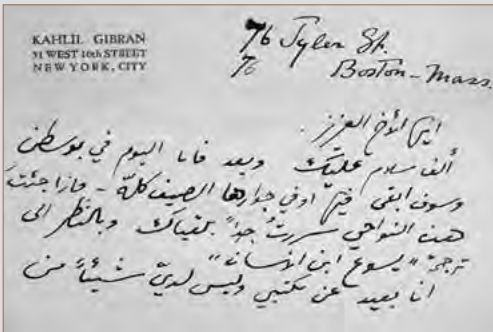 KAHLIL GIBRAN
51 WEST 10th STREET
NEW YORK, CITY
76 Tyler St.
76 Boston – Mass.
ايها الأخ العزيز .
ألف سلام عليك وبعد فانا اليوم في بوسطن
وسوف ابقى فيها او في جوارها الصيف كلّه – فاذا جئتَ
هذه النواحي سررتُ جداً بلقياك وبالنظر الى
ترجمة "يسوع ابن الانسان"
انا بعيد عن مكتبي وليس لديّ شيئاً من